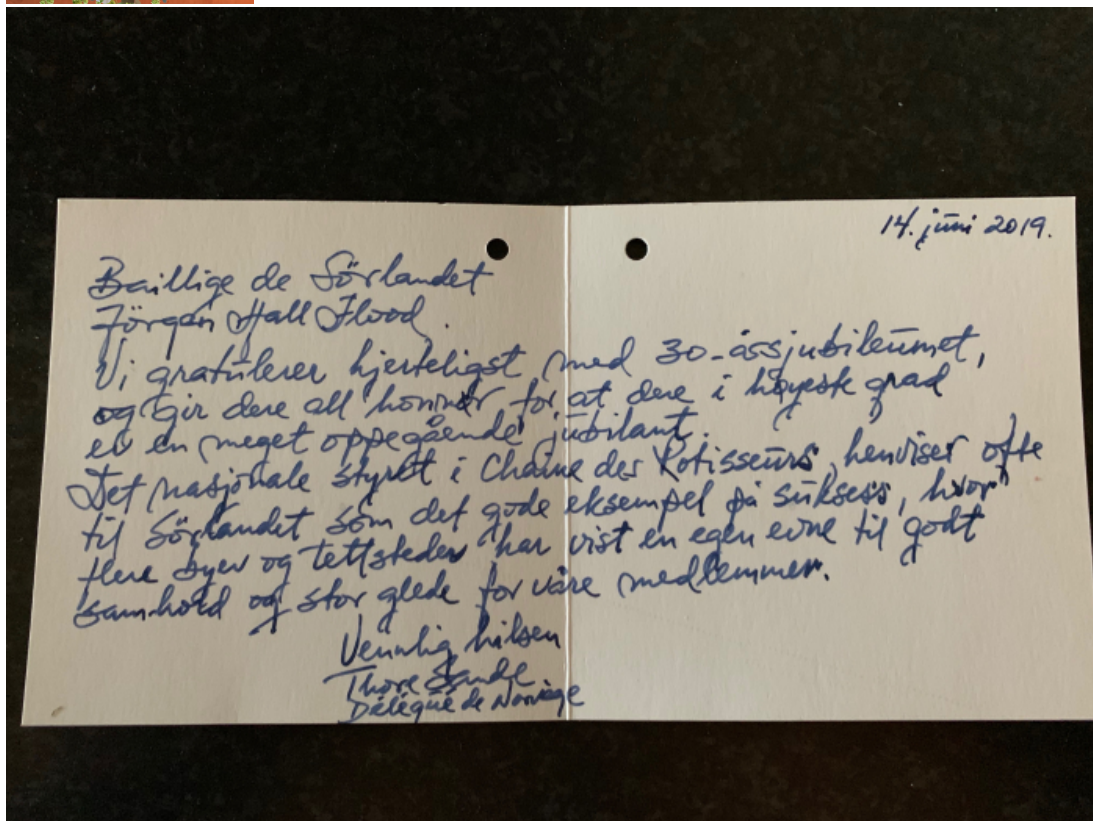 14. juni 2019.
Baillige de Sörlandet
Jörgen Hall Flood.
Vi gratulerer hjerteligst med 30-årsjubileumet,
og gir dere all honnør for at dere i høyeste grad
er en meget oppegående jubilant.
Det nasjonale styret i Chaine des Rotisseurs, henviser ofte
til Sörlandet som det gode eksempel på suksess, hvor
flere byer og tettsteder har vist en egen evne til godt
samhold og stor glede for våre medlemmer.
Vennlig hilsen
Thore Sande
Délégué de Norvège